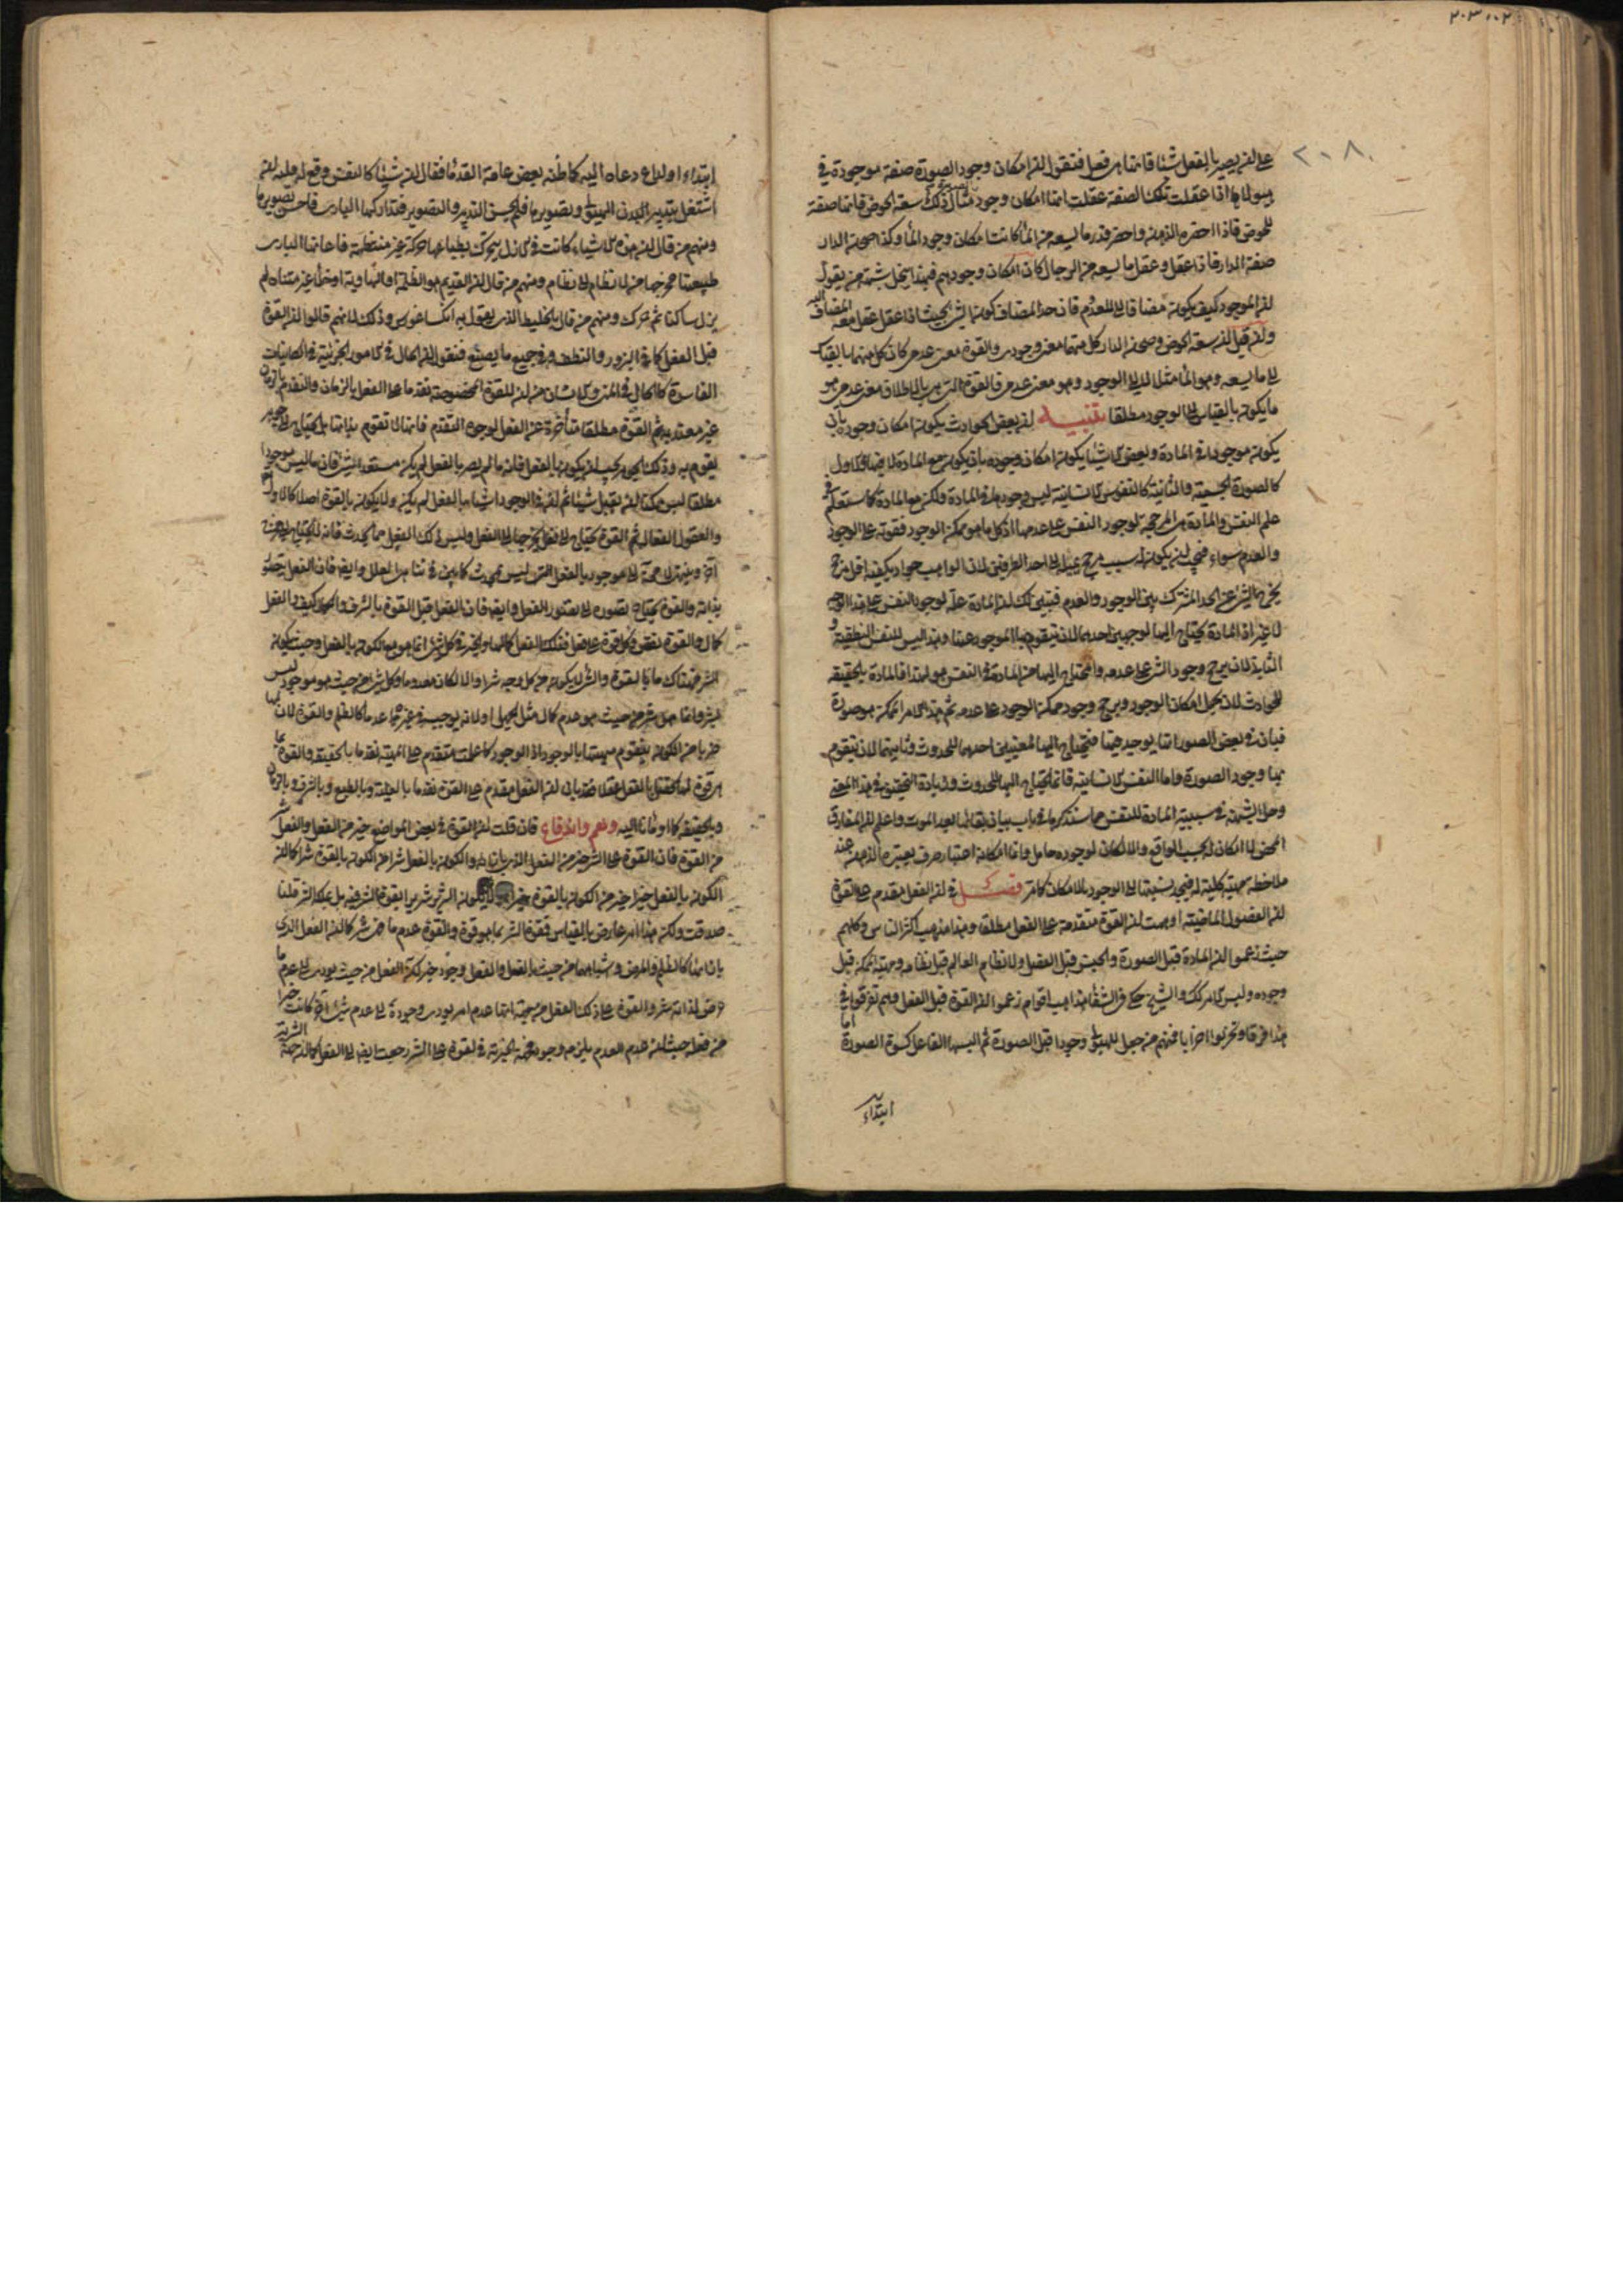 ٢٠٣٠٠٢
٢٠٨
على ان يصير بالفعل شيئا قائما هي فعل فنقول ان امكان وجود الصورة صفة موجودة في
هيولاها اذا عقلت تلك الصفة عقلت انها امكان وجود مثال ذلك سعة الحوض فانها صفة
للحوض فاذا احضره الذهن واحضر قدر ما يسعه من الماء كانت امكان وجود الماء وكذا صحن الدار
صفة الدار فاذا عقل وعقل ما يسعه من الرجال كان امكان وجودهم فبهذا ينحل شبهة من يقول
ان الموجود كيف يكون مضافا الى المعدوم فان حد المضاف كون الشئ بحيث اذا عقل عقل معه المضاف اليه
وان قيل ان سعة الحوض وصحن الدار كل منهما معنى وجودي والقوة معنى عدمي كان كل منهما بالقياس
الى ما يسعه وهو الماء مثلا لدى الوجود وهو معنى عدمي فالقوة التي هي بالاطلاق معنى عدمي هو
ما يكون بالقياس الى الوجود مطلقا تنبيه ان بعض الحوادث يكون امكان وجوده بان
يكون موجودا في المادة وبعض الاشياء يكون امكان وجوده بان يكون مع المادة لا فيها فالاول
كالصورة الجسمية والثانية كالنفوس الانسانية ليس وجودها في المادة ولكن مع المادة كما ستعلم في
علم النفس والمادة هي المرجحة لوجود النفس على عدمها اذ كل ما هو ممكن الوجود فقوته على الوجود
والعدم سواء فيجب ان يكون له سبب مرجح يميله الى احد الطرفين لان الواهب جواد يكفيه اقل مرجح
يخرج الشئ عن الحد المشترك بين الوجود والعدم فتبين لك ان المادة علة لوجود النفس على هذا الوجه
لا غير اذ المادة يحتاج اليها لوجهين احدهما لان يتقوم بها الموجود عنها وهذا ليس للنفس النطقية و
الثاني لان يرجح وجود الشئ على عدمه والمحتاج اليها من المادة في النفس هو لهذا فالمادة بالحقيقة
للحوادث لان تحمل امكان الوجود ويرجح وجود ممكن الوجود على عدمه ثم هذا الامر الممكن هو صورة
فبان ان بعض الصور انما يوجد فيها فيحتاج اليها لمعنيين احدهما للحدوث وثانيهما لان يتقوم
بها وجود الصورة واما النفس الانسانية فانما يحتاج اليها للحدوث وزيادة التحقيق في هذا المعنى
وحل الشبهة في سببية المادة للنفس مما سنذكرها في باب بيان بقائها بعد الموت واعلم ان المفارق
المحض لا امكان له بحسب الواقع والا لكان لوجوده حامل وانما امكانه اعتبار صرف يعتبره الذهن عند
ملاحظة مهية كلية له فيجد نسبتها الى الوجود بالامكان كما مر فصل في ان الفعل مقدم على القوة
ان الفصول الماضية اوهمت ان القوة متقدمة على الفعل مطلقا وهذا مذهب اكثر الناس وكلهم
حيث زعموا ان المادة قبل الصورة والجنس قبل الفصل ولا نظام العالم قبل نظامه ومهية الممكن قبل
وجوده وليس الامر كذلك والشيخ حكى في الشفا مذاهب اقوام زعموا ان القوة قبل الفعل وهم تفرقوا في
هذا فرقا وتحزبوا احزابا فمنهم من جعل للهيولى وجودا قبل الصورة ثم البسها الفاعل كسوة الصورة اما
ابتداء
ابتداء او لداع دعاه اليه كما ظنه بعض عامة القدماء فقال ان شيئا كالنفس وقع له فلتة ان
اشتغل بتدبير البدن الهيولى وتصويرها فلم يحسن التدبير والتصوير فتداركها الباري فاحسن تصويرها
ومنهم من قال ان هذه الاشياء كانت في الازل يتحرك بطباعها حركة غير منتظمة فاعانها الباري
طبيعتها فخرجها من لا نظام الى نظام ومنهم من قال ان القديم هو الظلمة او الهاوية او خلأ غير متناه لم
يزل ساكنا ثم تحرك ومنهم من قال بالخليط الذي يقول به انكساغورس وذلك لانهم قالوا ان القوة
قبل الفعل كما في البزور والنطف وفي جميع ما يصنع فنقول ان الحال في الامور الجزئية في الكاينات
الفاسدة كالحال في المنى والانسان من ان للقوة المخصوصة تقدما على الفعل بالزمان والتقدم بالزمان
غير معتد به ثم القوة مطلقا متأخرة عن الفعل لوجوه التقدم فانها لا تقوم بذاتها بل تحتاج الى جوهر
تقوم به وذلك الجوهر يجب ان يكون بالفعل فانه ما لم يصر بالفعل لم يكن مستعدا لشئ فان ما ليس موجودا
مطلقا ليس ممكنا ان يقبل شيئا ثم ان في الوجود اشياء بالفعل لم يكن ولا يكون بالقوة اصلا كالاول
والعقول الفعالة ثم القوة تحتاج الى فعل يخرجها الى الفعل وليس ذلك الفعل مما يحدث فانه يحتاج الى مخرج
آخر وينتهي لا محالة الى موجود بالفعل ليس بمحدث كما بين في تناهي العلل وايضا فان الفعل يتصور
بذاته والقوة يحتاج تصوره الى تصور الفعل وايضا فان الفعل قبل القوة بالشرف والكمال كيف والفعل
كمال والقوة نقص وكل قوة على فعل فذلك الفعل كمالها والخير في كل شئ انما هو مع الكون بالفعل وحيث يكون
الشر فهناك ما بالقوة والشئ لا يكون من كل وجه شرا والا لكان معدوما وكل شئ من حيث هو موجود ليس
بشر وانما هو شر من حيث هو عدم كمال مثل الجهل او لانه يوجب في غيره عدما كالظلم والقوة لان لها
ضربا من الكون يتقوم مهيتها بالوجود اذ الوجود كما علمت متقدم على المهية تقدما بالحقيقة والقوة بما
هي قوة لها تحصل بالفعل عقلا فقد بان ان الفعل مقدم على القوة تقدما بالعلية وبالطبع وبالشرف وبالزمان
وبالحقيقة كما اومأنا اليه وهم واندفاع فان قلت ان القوة في بعض المواضع خير من الفعل والفعل شر
من القوة فان القوة على الشر خير من الفعل والكون بالفعل شرا من الكون بالقوة شرا كما ان
الكون بالفعل خيرا خير من الكون بالقوة خيرا ولا يكون الشرير شريرا بقوة الشر فيه بل بملكة الشر قلنا
صدقت ولكن هذا امر عارض بالقياس فقوة الشر بما هو قوة والقوة عدم ما فهي شر كما ان الفعل الذي
بازائها كالظلم والمرض واشباههما من حيث الفعل والفعل وجود خير لكن الفعل من حيث يؤدي الى عدم ما
فرض لذاته شر والقوة على ذلك الفعل من حيث انها عدم امر يؤدي وجوده الى عدم شئ آخر كانت خيرا
من فعله حيث ان عدم العدم يلزمه وجود فجهة الخيرية في القوة على الشر رجعت ايضا الى الفعل كما ان جهة الشرية